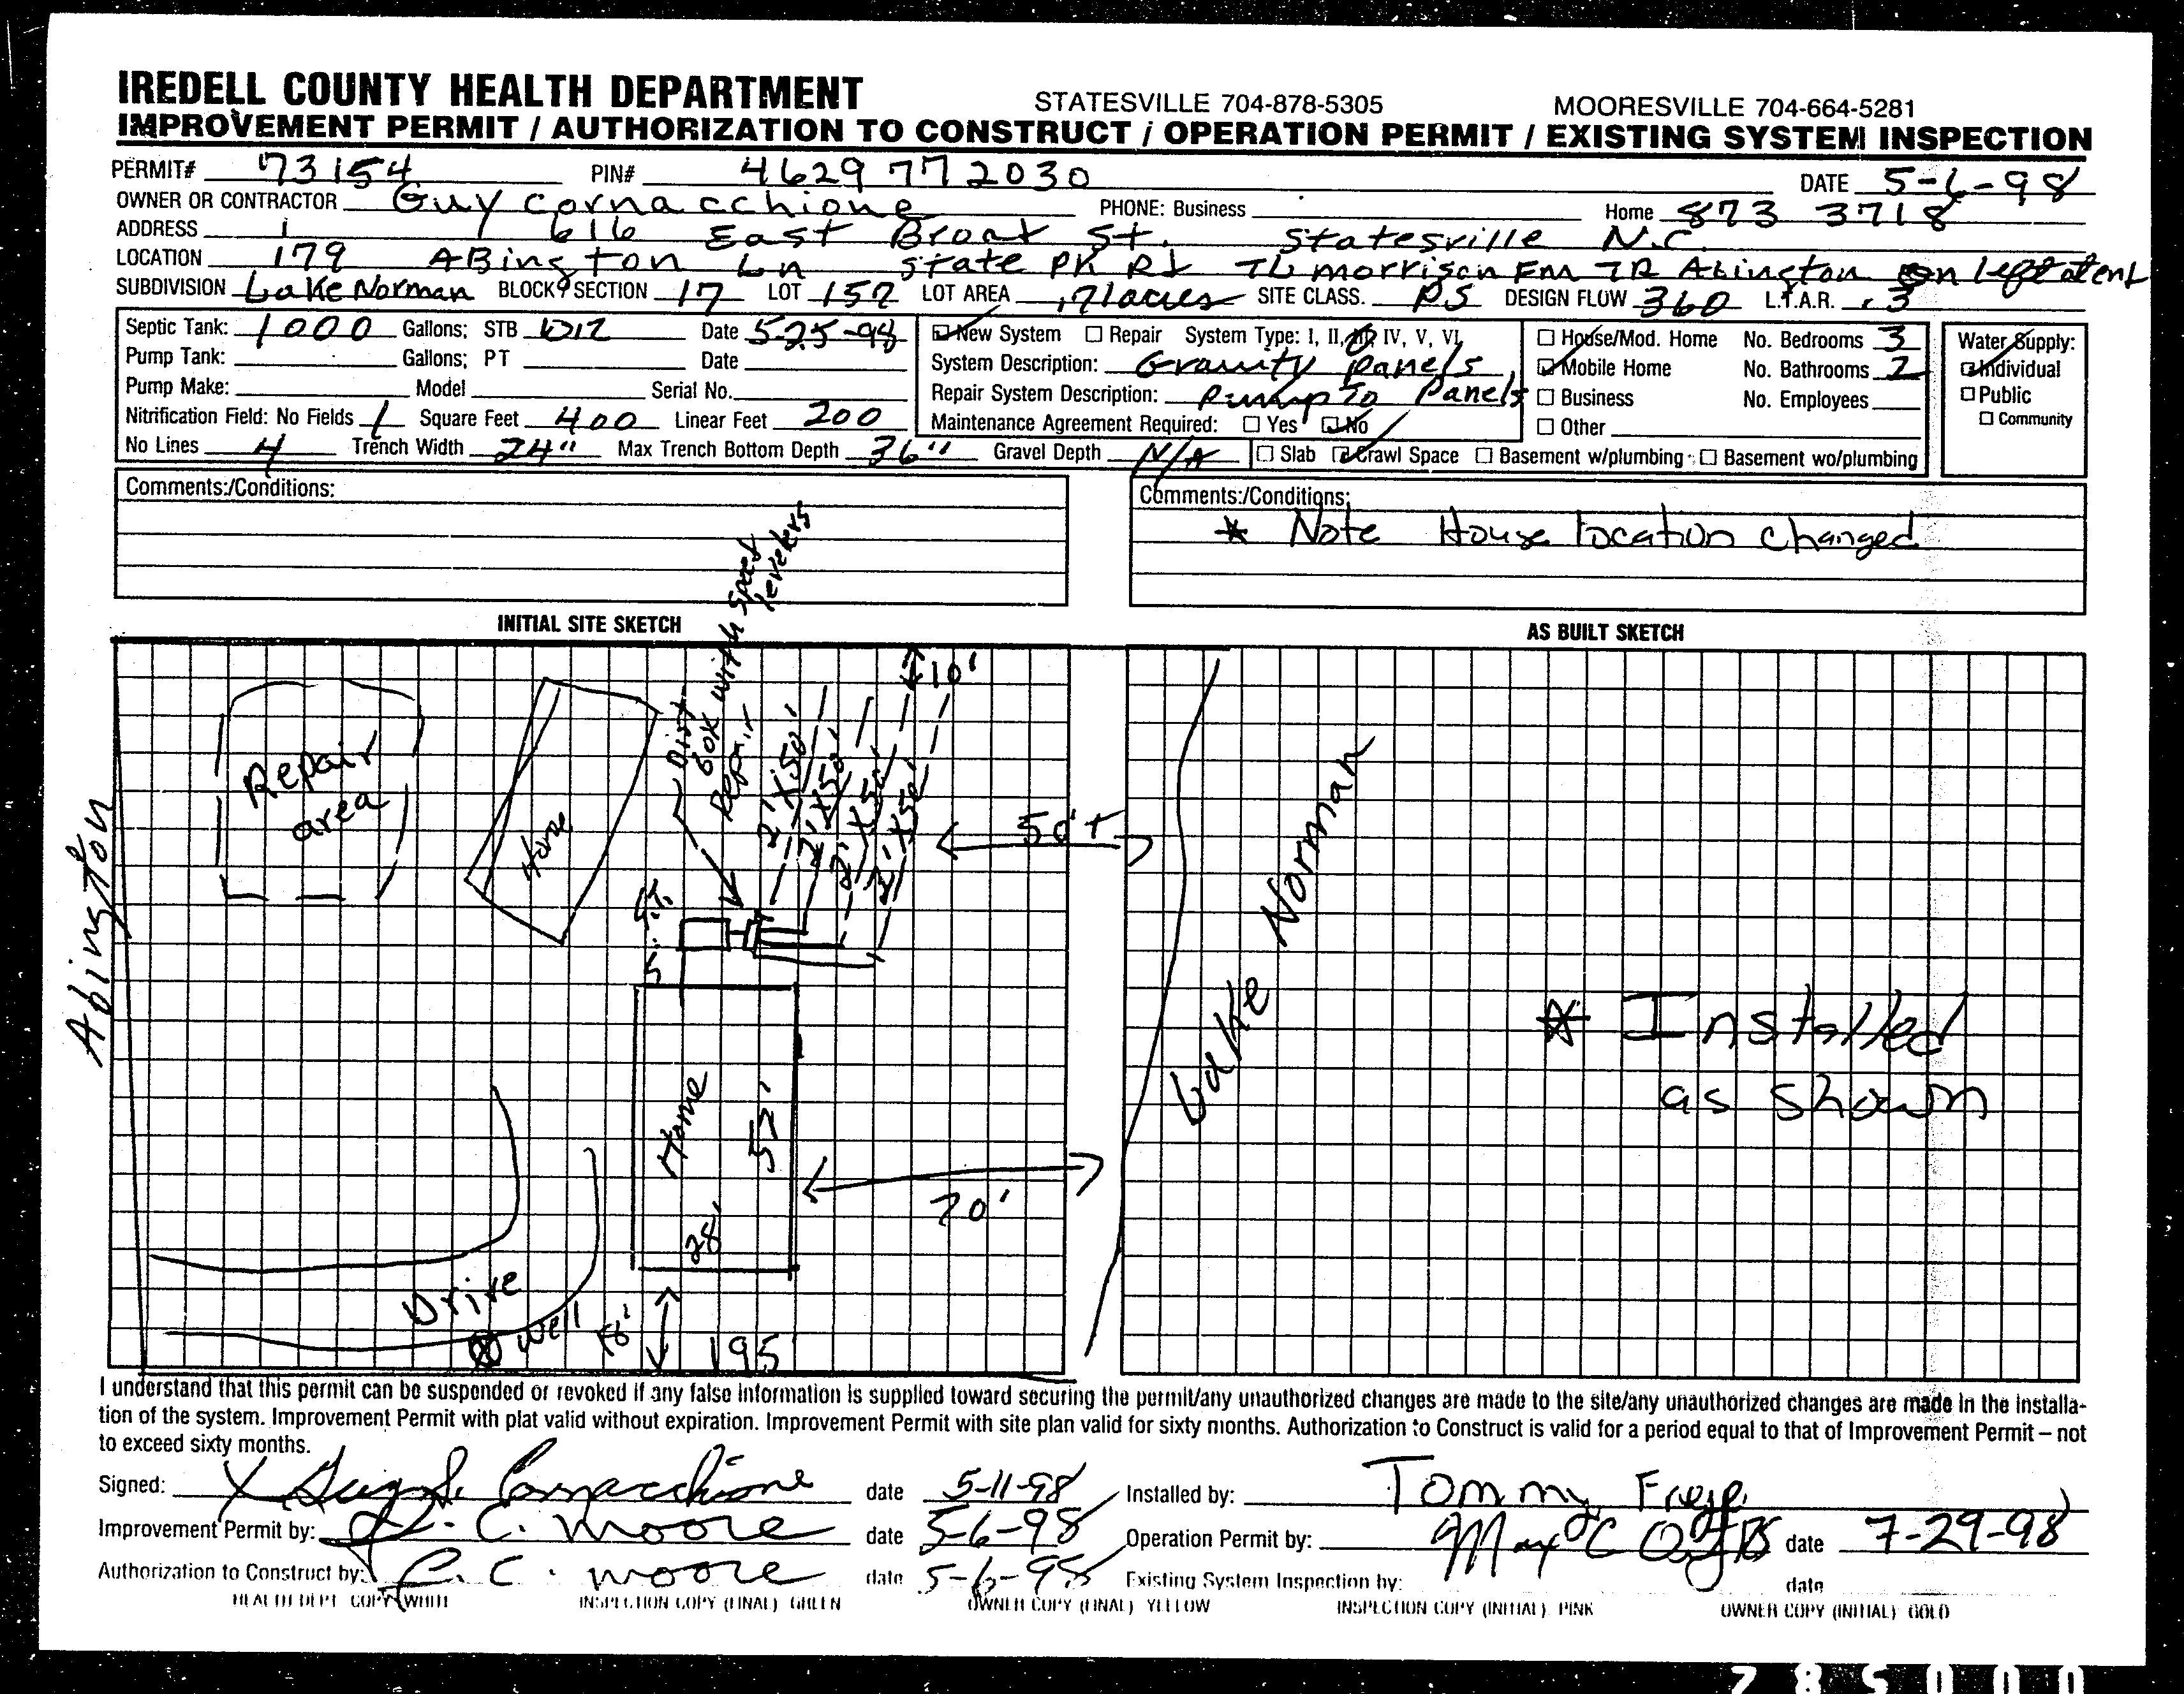 IREDELL COUNTY HEALTH DEPARTMENT STATESVILLE 704-878-5305 MOORESVILLE 704-664-5281
IMPROVEMENT PERMIT / AUTHORIZATION TO CONSTRUCT / OPERATION PERMIT / EXISTING SYSTEM INSPECTION
PERMIT# 73154 PIN# 4629 77 2030 DATE 5-6-98
OWNER OR CONTRACTOR Guy Cornacchione PHONE: Business Home 873 3718
ADDRESS 616 East Broad St. Statesville N.C.
LOCATION 179 ABington Ln State PK Rd TL morrison Fm TR Abington on left at end
SUBDIVISION Lake Norman BLOCK SECTION 17 LOT 157 LOT AREA .71 acres SITE CLASS. PS DESIGN FLOW 360 L.T.A.R. .3
Septic Tank: 1000 Gallons; STB Date 5-25-98 New System Repair System Type: I, II, III, IV, V, VI House/Mod. Home No. Bedrooms 3 Water Supply:
Pump Tank: Gallons; PT Date System Description: Gravity Panels Mobile Home No. Bathrooms 2 Individual
Pump Make: Model Serial No. Repair System Description: Pump To Panels Business No. Employees Public
Nitrification Field: No Fields 1 Square Feet 400 Linear Feet 200 Maintenance Agreement Required: Yes No Other Community
No Lines 4 Trench Width 24" Max Trench Bottom Depth 36" Gravel Depth N/A Slab Crawl Space Basement w/plumbing Basement wo/plumbing
Comments:/Conditions: Comments:/Conditions:
* Note House location changed
INITIAL SITE SKETCH AS BUILT SKETCH
Dist box with speed levelers
10'
Repair area
Home
Repair
2' X 50'
2' X 50'
2' X 50'
2' X 50'
50'+
Abington
S.T.
5'
Lake Norman
* Installed
as shown
Home
52'
28'
70'
Drive
Well
195
I understand that this permit can be suspended or revoked if any false information is supplied toward securing the permit/any unauthorized changes are made to the site/any unauthorized changes are made in the installa-
tion of the system. Improvement Permit with plat valid without expiration. Improvement Permit with site plan valid for sixty months. Authorization to Construct is valid for a period equal to that of Improvement Permit – not
to exceed sixty months.
Signed: X Guy Cornacchione date 5-11-98 Installed by: Tommy Frye
Improvement Permit by: R. C. Moore date 5-6-98 Operation Permit by: Max C date 7-29-98
Authorization to Construct by: R. C. Moore date 5-6-98 Existing System Inspection by: date
HEALTH DEPT COPY WHITE INSPECTION COPY (FINAL) GREEN OWNER COPY (FINAL) YELLOW INSPECTION COPY (INITIAL) PINK OWNER COPY (INITIAL) GOLD